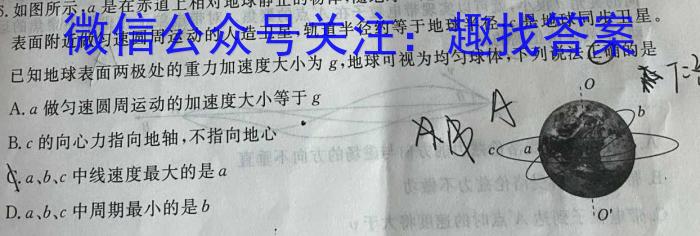 如图所示,a是在赤道上相对地球静止的物体,
表面附近做匀速圆周运动的人造卫星,轨道半径约等于地球半径,c是地球同步卫星。
微信公众号关注:趣找答案
已知地球表面两极处的重力加速度大小为g,地球可视为均匀球体,下列说法正确的是
A.a做匀速圆周运动的加速度大小等于g
B.c的向心力指向地轴,不指向地心
C.a、b、c中线速度最大的是a
D.a、b、c中周期最小的是b
A
AB
O
b
c
a
O'